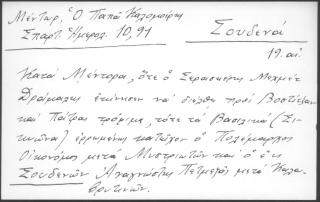 Μέντωρ, Ὁ Παπᾶ Καλομοίρης
Σπαρτ. Ἡμερολ. 10, 91
Σουδενά
19. αἰ.
Κατά Μέντορα, ὅτε ὁ Σερασκέρης Μεχμέτ
Δράμαλης ἐκίνησεν νά διέλθῃ πρός Βοστίτσαν
καί Πάτρας τρόφιμα, τότε τά Βασιλικά (Σι-
κυῶνα) ἐρρωμένως κατεῖχον ὁ Πολέμαρχος
Οἰκονόμος μετά Μυστριωτῶν καί ὁ ἐκ
Σουδενῶν Ἀναγνώστης Πετμεζᾶς μετά Καλα-
βρυτινῶν.